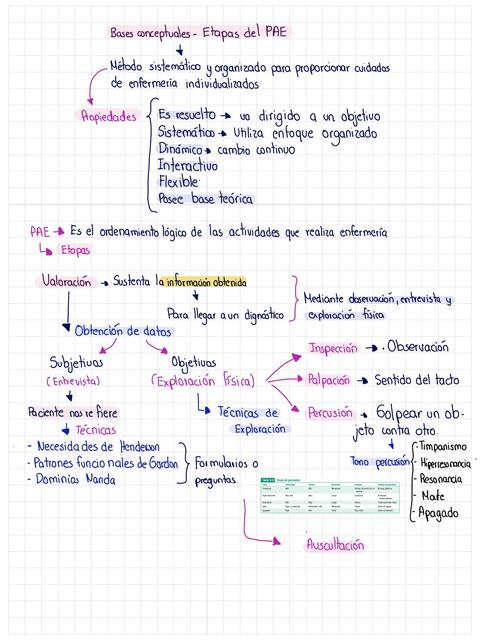 Bases conceptuales - Etapas del PAE
Método sistemático y organizado para proporcionar cuidados
de enfermería individualizados
Propiedades
Es resuelto → va dirigido a un objetivo
Sistemático → Utiliza enfoque organizado
Dinámico → cambio continuo
Interactivo
Flexible
Posee base teórica
PAE → Es el ordenamiento lógico de las actividades que realiza enfermería
Etapas
Valoración → Sustenta la información obtenida
Para llegar a un dignóstico
Mediante observación, entrevista y
exploración física
Obtención de datos
Subjetivos
(Entrevista)
Objetivos
(Exploración física)
Inspección → . Observación
Palpación → Sentido del tacto
Percusión → Golpear un ob-
jeto contra otro.
Paciente nos refiere
Técnicas
Técnicas de
Exploración
- Necesidades de Henderson
- Patrones funcionales de Gordon
- Dominios Nanda
Formularios o
preguntas.
Tono percusión
· Timpanismo
· Hiperresonancia
· Resonancia
· Mate
· Apagado
Auscultación